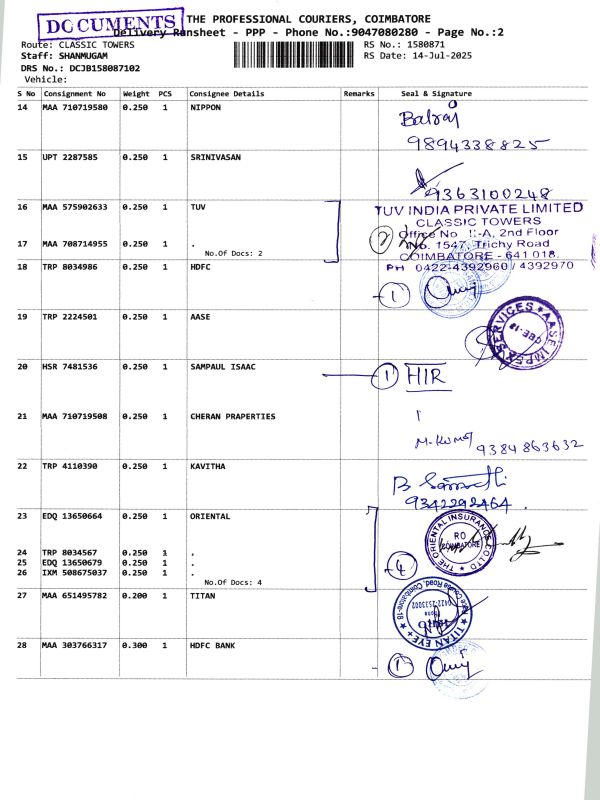 DOCUMENTS
THE PROFESSIONAL COURIERS, COIMBATORE
Delivery Runsheet - PPP - Phone No.:9047080280 - Page No.:2
Route: CLASSIC TOWERS RS No.: 1580871
Staff: SHANMUGAM RS Date: 14-Jul-2025
DRS No.: DCJB158087102
Vehicle:
S No Consignment No Weight PCS Consignee Details Remarks Seal & Signature
14 MAA 710719580 0.250 1 NIPPON
Balraj
9894338825
15 UPT 2287585 0.250 1 SRINIVASAN
9363100248
16 MAA 575902633 0.250 1 TUV
TUV INDIA PRIVATE LIMITED
CLASSIC TOWERS
Office No -A, 2nd Floor
No. 1547, Trichy Road
COIMBATORE - 641 018.
PH 0422-4392960 / 4392970
17 MAA 708714955 0.250 1 .
No.Of Docs: 2
18 TRP 8034986 0.250 1 HDFC
1
19 TRP 2224501 0.250 1 AASE
AASE IMPEX SERVICES
CBE-18
20 HSR 7481536 0.250 1 SAMPAUL ISAAC
1 HIR
21 MAA 710719508 0.250 1 CHERAN PRAPERTIES
M. Kumar 9384863632
22 TRP 4110390 0.250 1 KAVITHA
9342292464.
23 EDQ 13650664 0.250 1 ORIENTAL
THE ORIENTAL INSURANCE CO LTD
RO
COIMBATORE
24 TRP 8034567 0.250 1 .
25 EDQ 13650679 0.250 1 .
26 IXM 508675037 0.250 1 .
No.Of Docs: 4
4
27 MAA 651495782 0.200 1 TITAN
TITAN EYE+
Phone
0422-2533002
Coimbatore-18
28 MAA 303766317 0.300 1 HDFC BANK
1